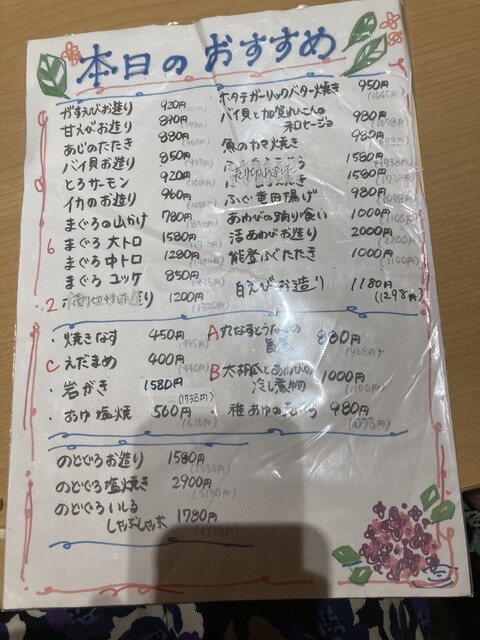 本日のおすすめ
ガスえびお造り 920円
甘えびお造り 880円
あじのたたき 880円
バイ貝お造り 850円
とろサーモン 920円
イカのお造り 960円
まぐろの山かけ 780円
まぐろ 大トロ 1580円
まぐろ 中トロ 1280円
まぐろ ユッケ 850円
売り切れました り 1200円
ホタテガーリックバター焼き 950円
(1045円)
バイ貝と加賀れんこんの
和ヒージョ 980円
魚のカマ焼き 980円
1580円
売り切れました 1580円
ふぐ竜田揚げ 980円
あわびの踊り食い 1000円
(1100円)
活あわびお造り 2000円
(2200円)
能登ふぐたたき 1000円
(1100円)
白えびお造り 1180円
(1298円)
・焼きなす 450円
C えだまめ 400円
(440円)
・岩がき 1580円
(1738円)
・あゆ塩焼 560円
(616円)
A 丸なすとうなぎの
880円
B 太胡瓜とあわびの
冷し煮物 1000円
(1100円)
稚あゆの 980円
のどぐろお造り 1580円
(1738円)
のどぐろ塩焼き 2900円
のどぐろいしる
しゃぶしゃぶ 1780円
(1958円)